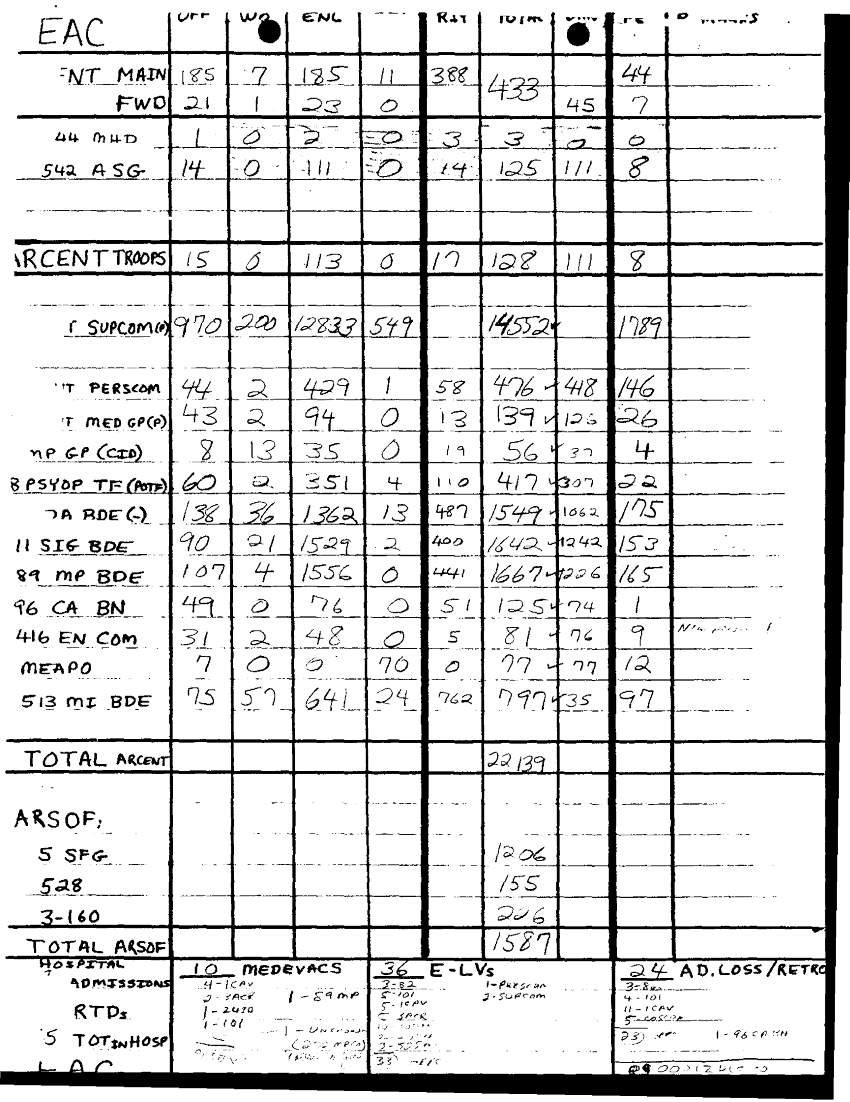 EAC OFF WO ENL RST TOTAL FE
ENT MAIN 185 7 185 11 388 433 44
FWD 21 1 23 0 45 7
44 MHD 1 0 2 0 3 3 0 0
542 ASG 14 0 111 0 14 125 111 8
ARCENT TROOPS 15 0 113 0 17 128 111 8
T SUPCOM(P) 970 200 12833 549 14552 1789
NT PERSCOM 44 2 429 1 58 476 418 146
T MED GP(P) 43 2 94 0 13 139 126 26
MP GP (CID) 8 13 35 0 19 56 37 4
8 PSYOP TF (POTF) 60 2 351 4 110 417 307 22
DA BDE (-) 138 36 1362 13 487 1549 1062 175
11 SIG BDE 90 21 1529 2 400 1642 1242 153
89 MP BDE 107 4 1556 0 441 1667 1226 165
96 CA BN 49 0 76 0 51 125 74 1
416 EN COM 31 2 48 0 5 81 76 9
MEAPO 7 0 0 70 0 77 77 12
513 MI BDE 75 57 641 24 762 797 35 97
TOTAL ARCENT 22139
ARSOF:
5 SFG 1206
528 155
3-160 226
TOTAL ARSOF 1587
HOSPITAL 10 MEDEVACS 36 E-LVs 24 AD.LOSS/RETRO
ADMISSIONS 4-1CAV 3-82 1-PERSCOM
2-3ACR 1-89MP 5-101 2-SUPCOM 4-101
RTDs 1-24ID 5-1CAV 11-1CAV
1-101 5-COSCOM
5 TOT IN HOSP 1-UNKNOWN 23) 1-96CA BN
33)
EAC